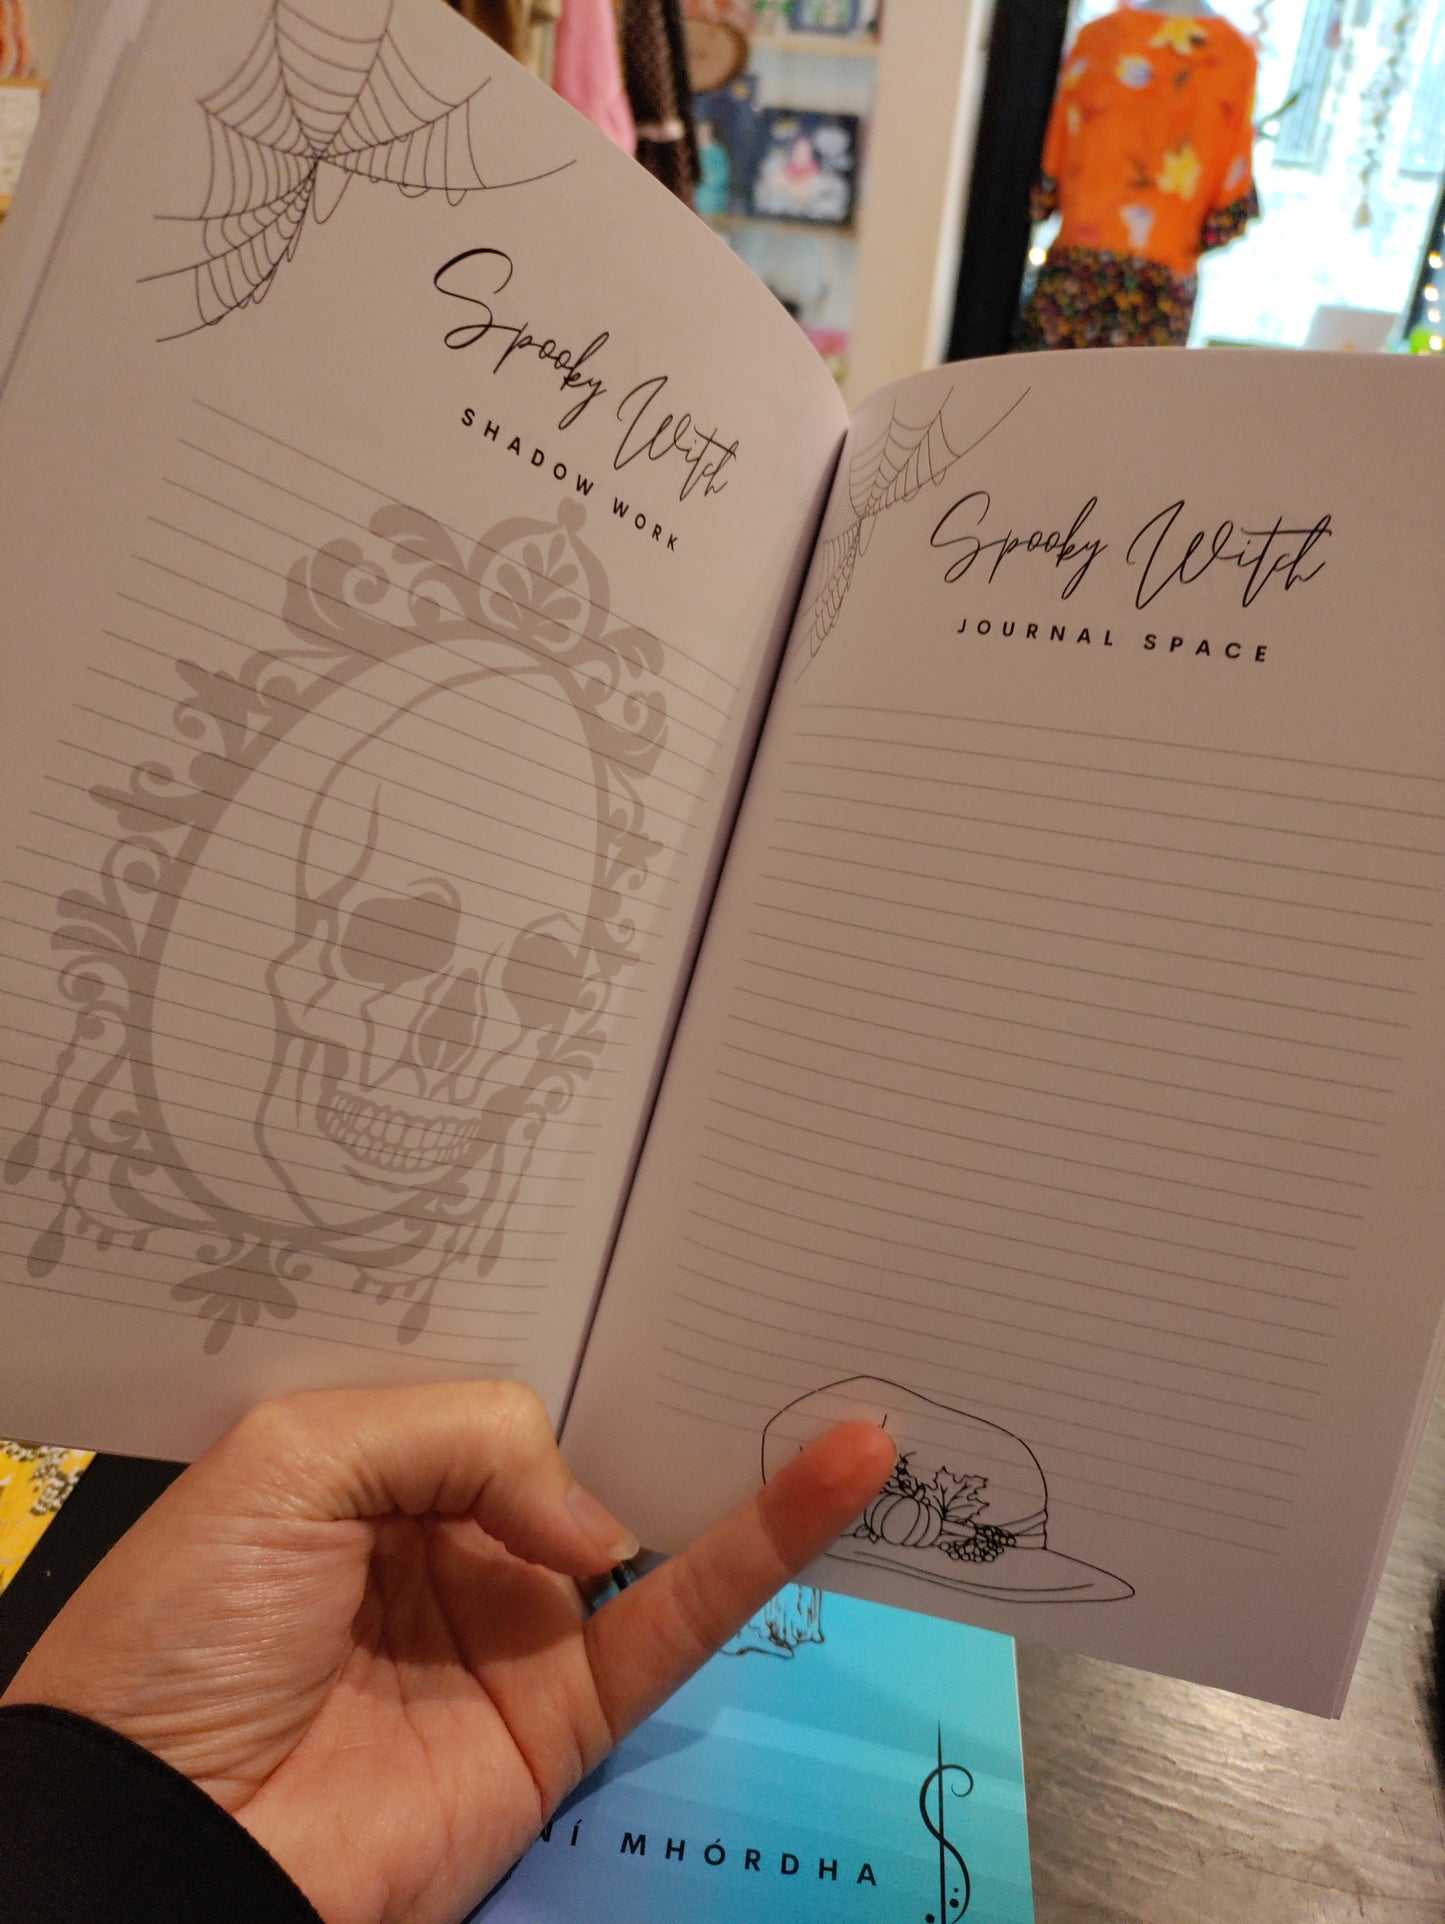 Spooky Witch
SHADOW WORK
Spooky Witch
JOURNAL SPACE
NÍ MHÓRDHA